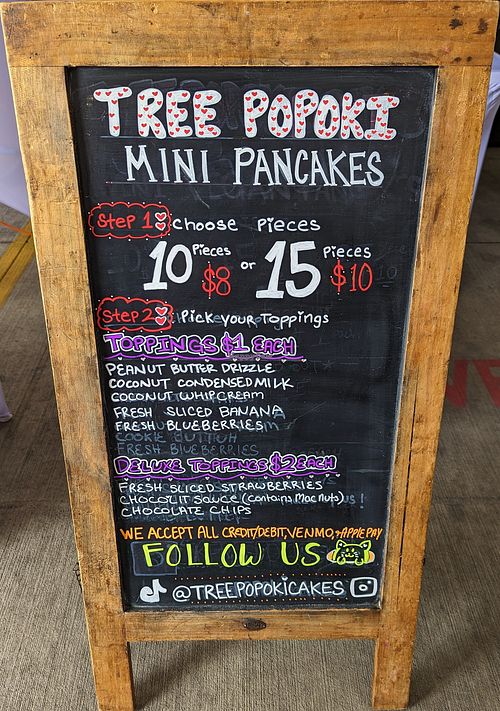 TREE POPOKI
MINI PANCAKES
Step 1: choose pieces
10 Pieces $8 or 15 Pieces $10
Step 2: Pick your Toppings
TOPPINGS $1 EACH
PEANUT BUTTER DRIZZLE
COCONUT CONDENSED MILK
COCONUT WHIP CREAM
FRESH SLICED BANANA
FRESH BLUEBERRIES
FRESH BLUEBERRIES
DELUXE TOPPINGS $2 EACH
FRESH SLICED STRAWBERRIES
CHOCO LIT SAUCE (contains Mac nuts)
CHOCOLATE CHIPS
WE ACCEPT ALL CREDIT/DEBIT, VENMO, + APPLE PAY
FOLLOW US
@TREEPOPOKICAKES